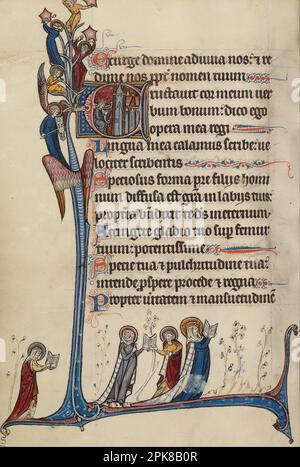 Exurge domine adiuva nos: et re
dime nos ppt nomen tuum
Eructauit cor meum uer
bum bonum: dico ego
opera mea regi
Lingua mea calamus scribe: ue
lociter scribentis
Speciosus forma pre filijs homi
num diffusa est gra in labijs tuis
propterea bndixit te deus in eternum
Accingere gladio tuo sup femur
tuum: potentissime
Specie tua et pulchritudine tua:
intende pspere procede et regna
Propter ueritatem et mansuetudinem
alamy
Image ID: 2PK8B0R
www.alamy.com